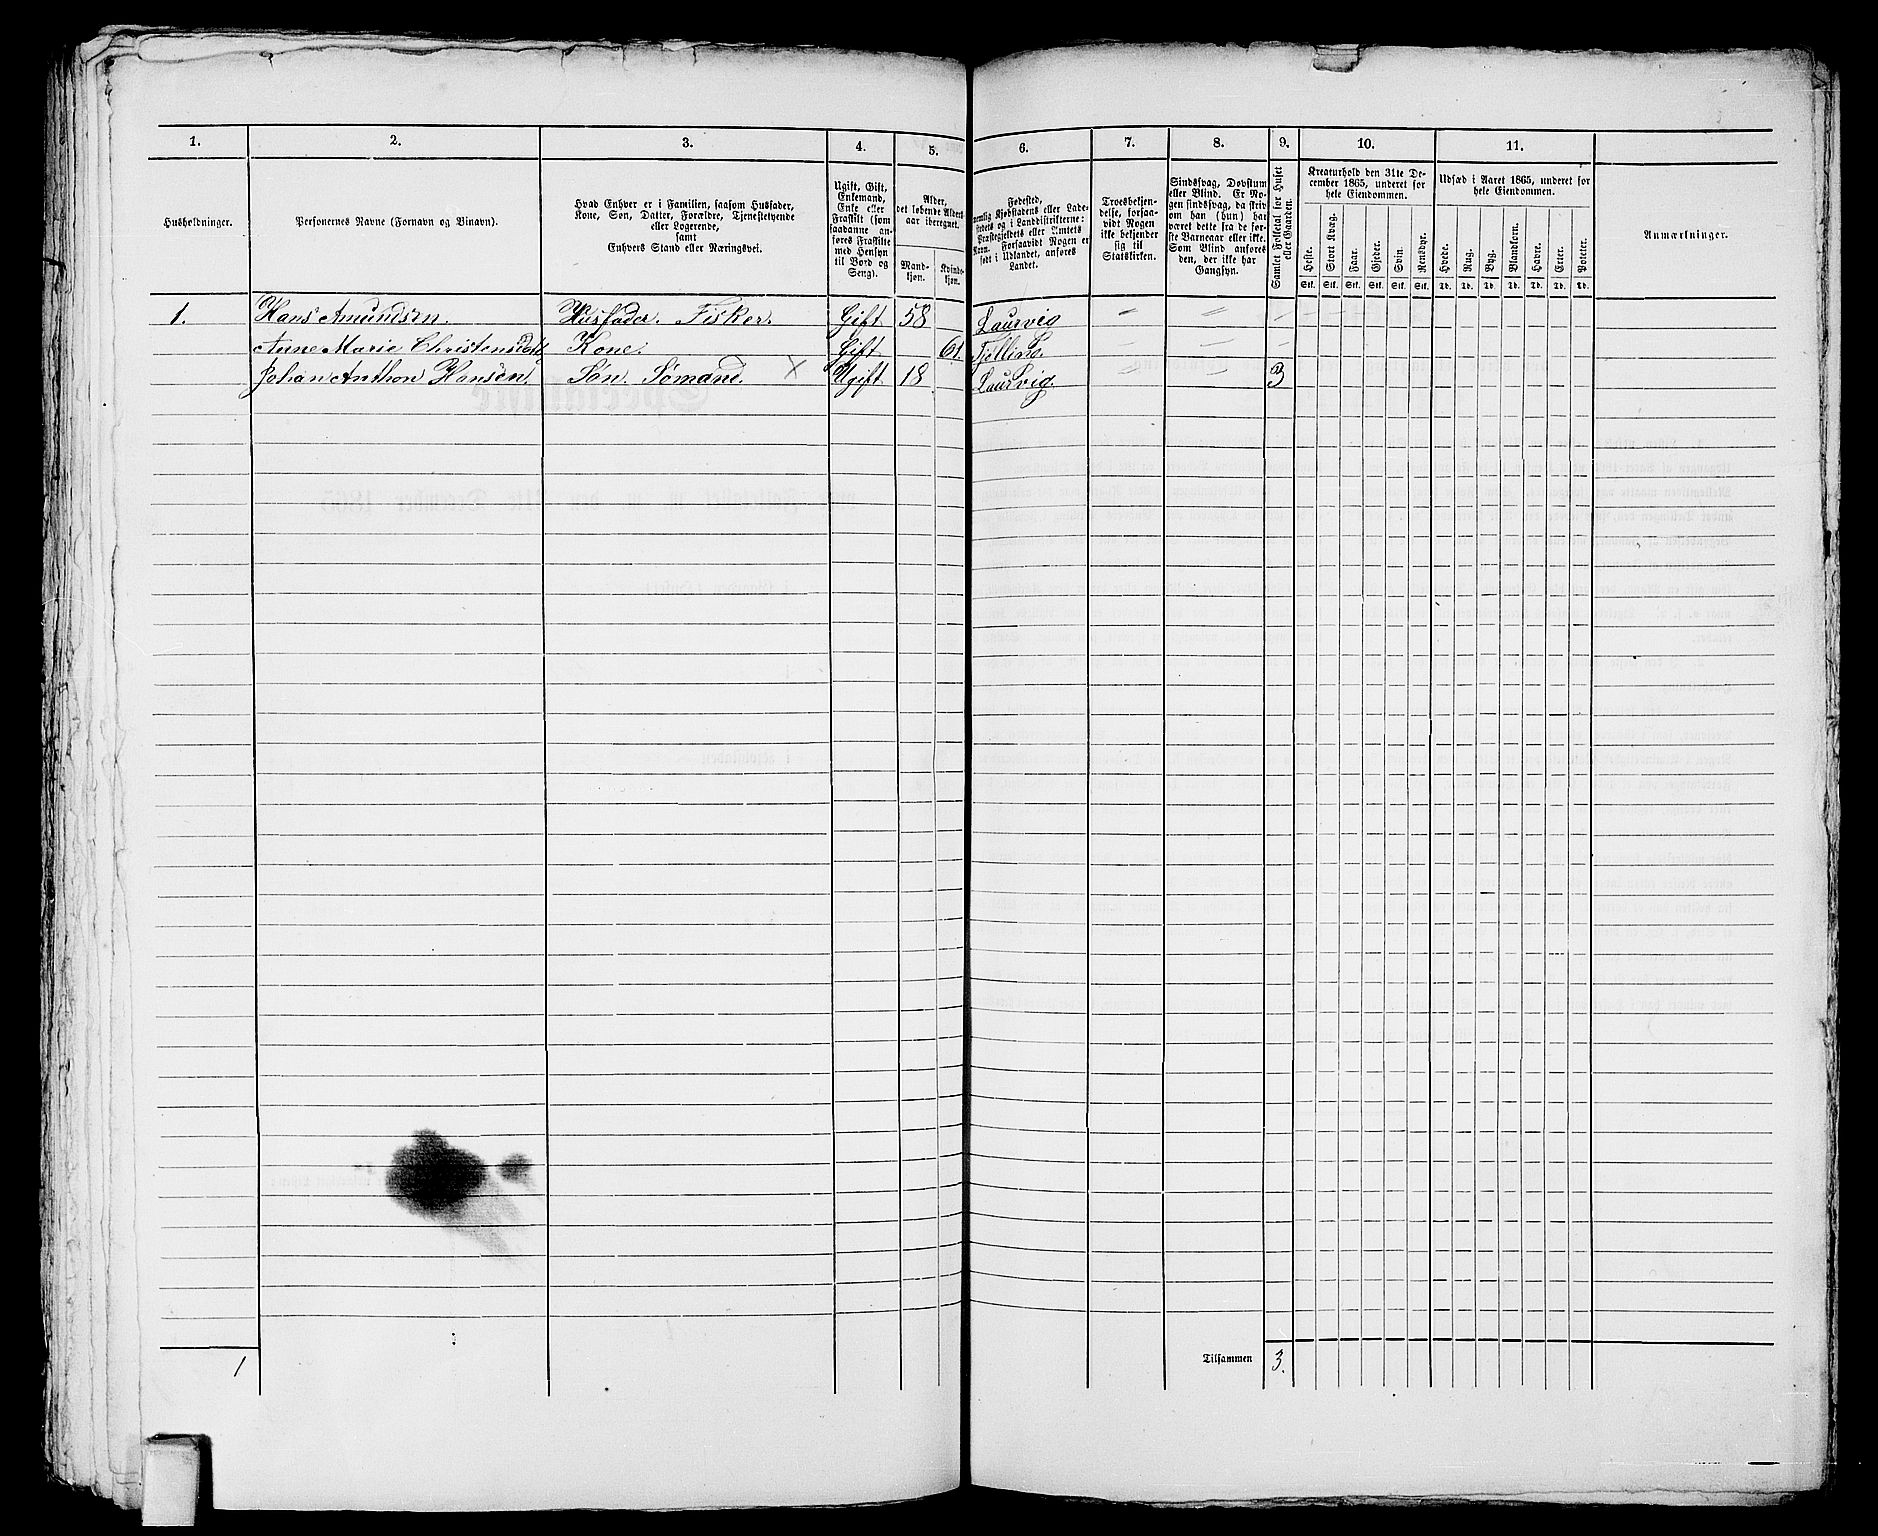 1. 2. 3. 4. 5. 6. 7. 8. 9. 10. 11.
Husholdninger.
Personernes Navne (Fornavn og Binavn).
Hvad Enhver er i Familien, saasom Husfader,
Kone, Søn, Datter, Forældre, Tjenestetyende
eller Logerende,
samt
Enhvers Stand eller Næringsvei.
Ugift, Gift,
Enkemand,
Enke eller
Fraskilt (som
saadanne an-
føres Fraskilte
med Hensyn
til Bord og
Seng).
Alder,
det løbende Alders-
aar iberegnet.
Mand-
kjøn.
Kvinde-
kjøn.
Fødested,
nemlig Kjøbstadens eller Lade-
stedets og i Landdistrikterne:
Præstegjeldets eller Amtets
Navn. Forsaavidt Nogen er
født i Udlandet, anføres
Landet.
Troesbekjen-
delse, forsaa-
vidt Nogen
ikke bekjender
sig til
Statskirken.
Sindssvag, Døvstum
eller Blind. Er No-
gen sindssvag, da skriv
om han (hun) har
været dette fra de før-
ste Barneaar eller ikke.
Som Blind anføres
den, der ikke har
Gangsyn.
Samlet Folketal for Huset
eller Gaarden.
Kreaturhold den 31te De-
cember 1865, underet for
hele Eiendommen.
Heste. Stort Kvæg. Faar. Gjeder. Svin. Rendyr.
Stk. Stk. Stk. Stk. Stk. Stk.
Udsæd i Aaret 1865, underet for
hele Eiendommen.
Hvede. Rug. Byg. Blandkorn. Havre. Erter. Poteter.
Td. Td. Td. Td. Td. Td. Td.
Anmærkninger.
1. Hans Amundsen. Husfader. Fisker. Gift 58 Laurvig " "
Anne Marie Christensdatt Kone. Gift 61. Tjølling. " "
Johan Anthon Hansen. Søn. Sømand. X Ugift 18 Laurvig. " " 3
1 Tilsammen 3.